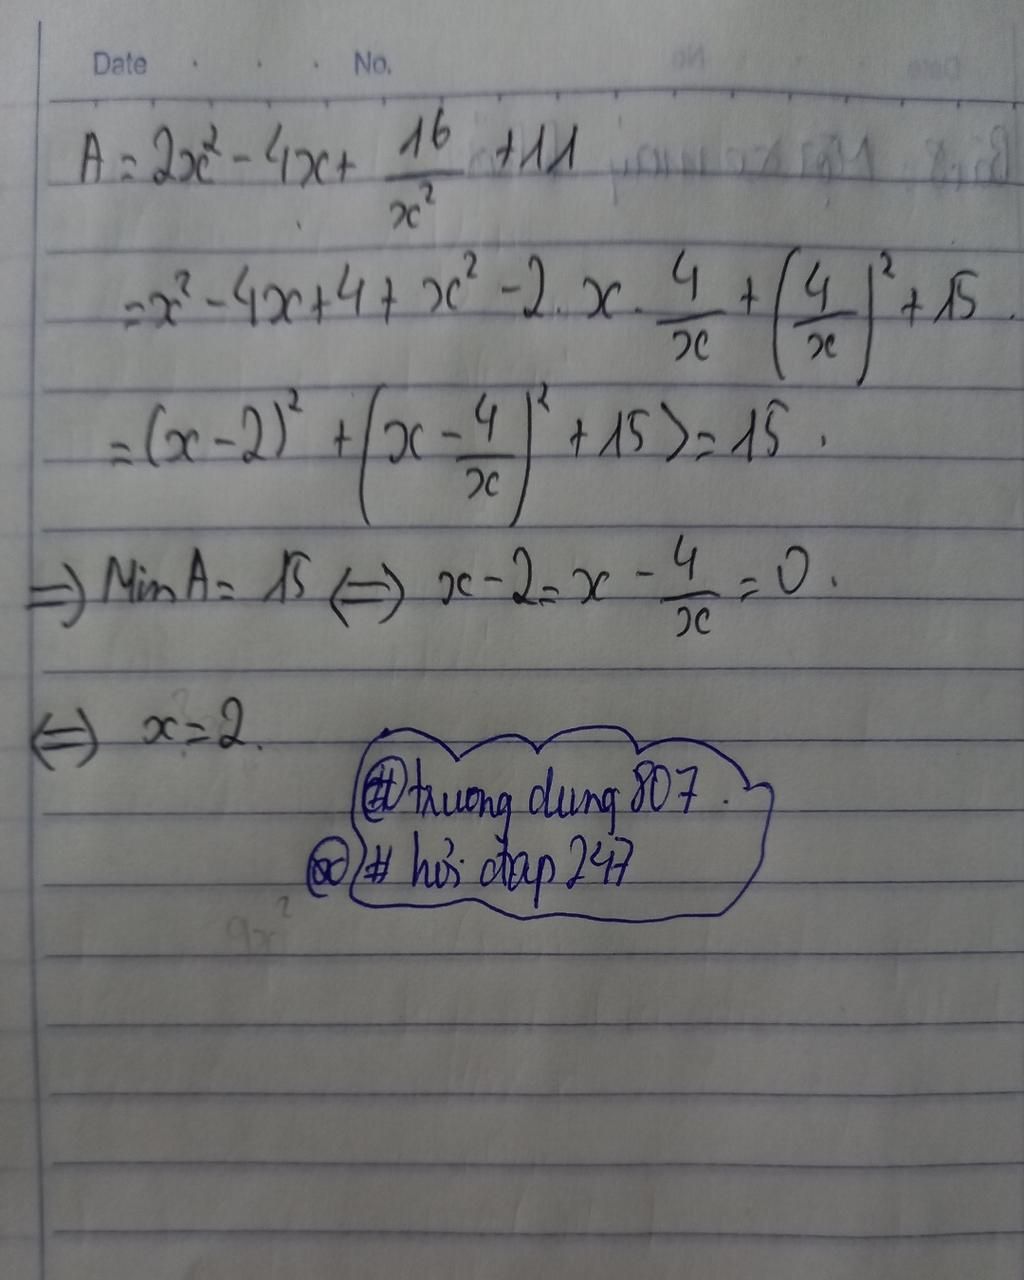 Date . . . No.
A = 2x² - 4x + 16/x² + 11
= x² - 4x + 4 + x² - 2. x . 4/x + (4/x)² + 15 .
= (x - 2)² + (x - 4/x)² + 15 >= 15 .
=> Min A = 15 <=> x - 2 = x - 4/x = 0 .
<=> x = 2.
# truong dung 807 .
# hỏi đap 247
9x²